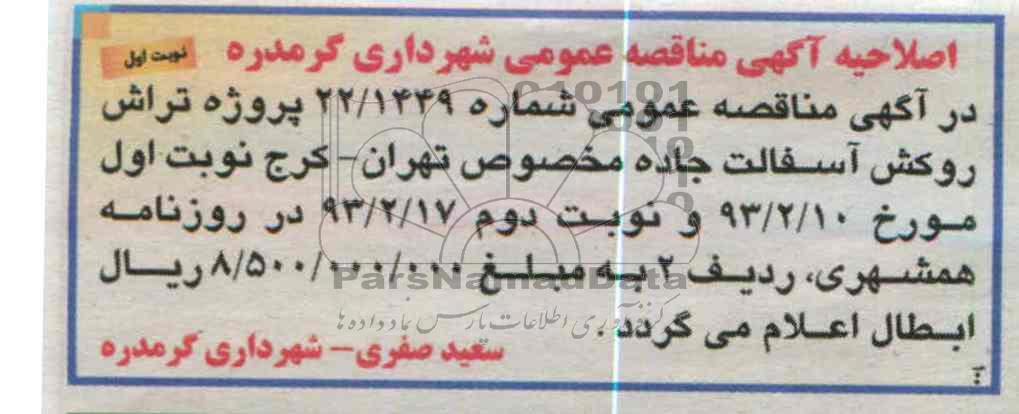 اصلاحیه آگهی مناقصه عمومی شهرداری گرمدره
نوبت اول
در آگهی مناقصه عمومی شماره ۲۲/۱۴۴۹ پروژه تراش
روکش آسفالت جاده مخصوص تهران- کرج نوبت اول
مورخ ۹۳/۲/۱۰ و نوبت دوم ۹۳/۲/۱۷ در روزنامه
همشهری، ردیف ۲ به مبلغ ۸/۵۰۰/۰۰۰/۰۰۰ ریال
ابطال اعلام می گردد.
سعید صفری- شهرداری گرمدره
ParsNamadData
اطلاعات پارس نماد داده ها